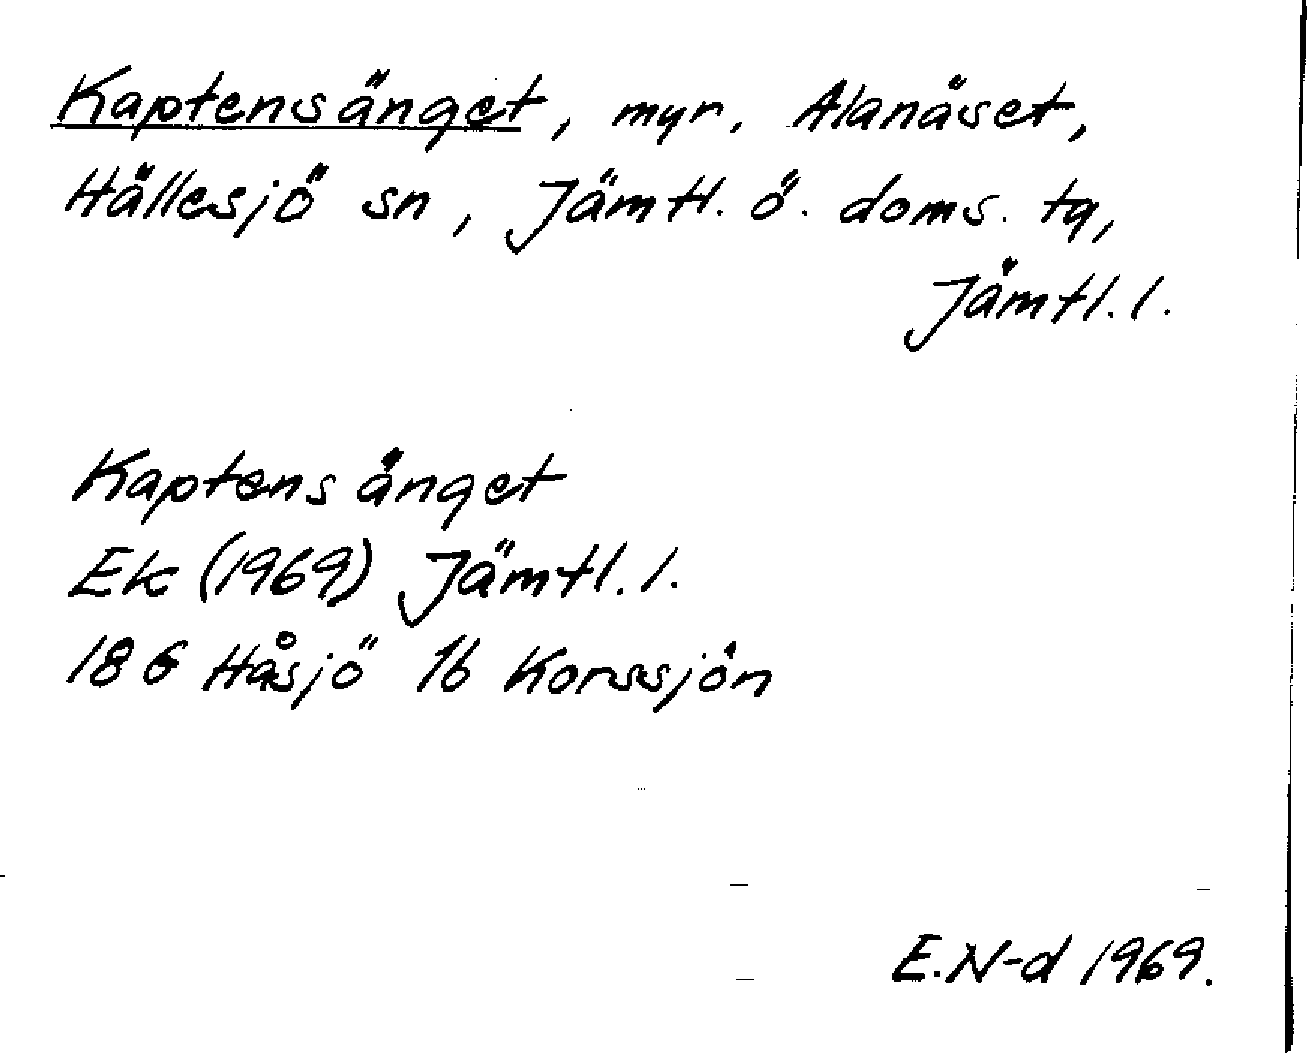 Kaptensänget, myr. Alanäset,
Hällesjö sn, Jämtl. ö. doms. tg,
Jämtl. l.
Kaptensänget
Ek (1969) Jämtl. l.
18G Håsjö 1b Korssjön
E.N-d 1969.